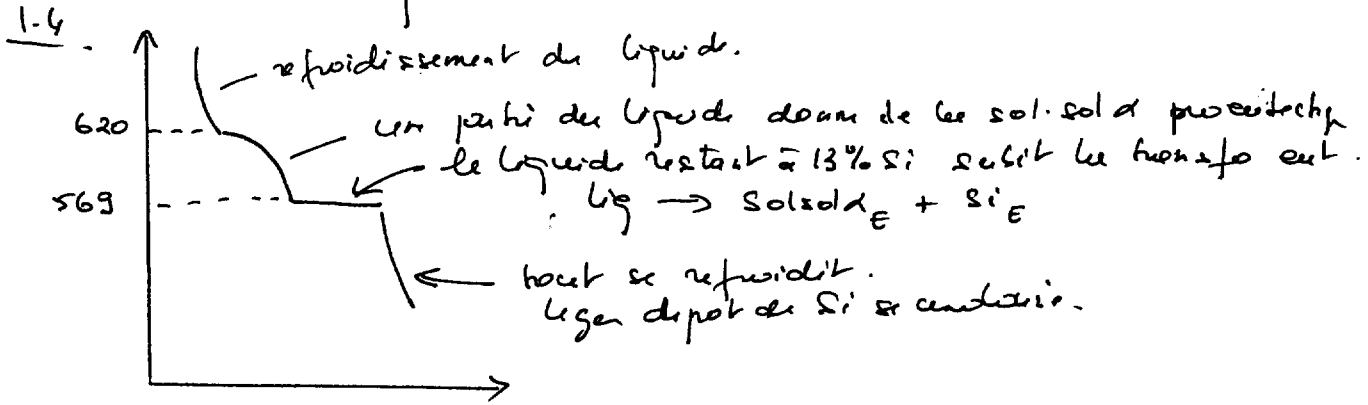 1-4
refroidissement du liquide.
620
une partie du liquide donne de la sol. sol α proeutectq
le liquide restant à 13% Si subit la transfo eut.
569
liq → Solsol α E + Si E
tout se refroidit.
léger dépôt de Si se